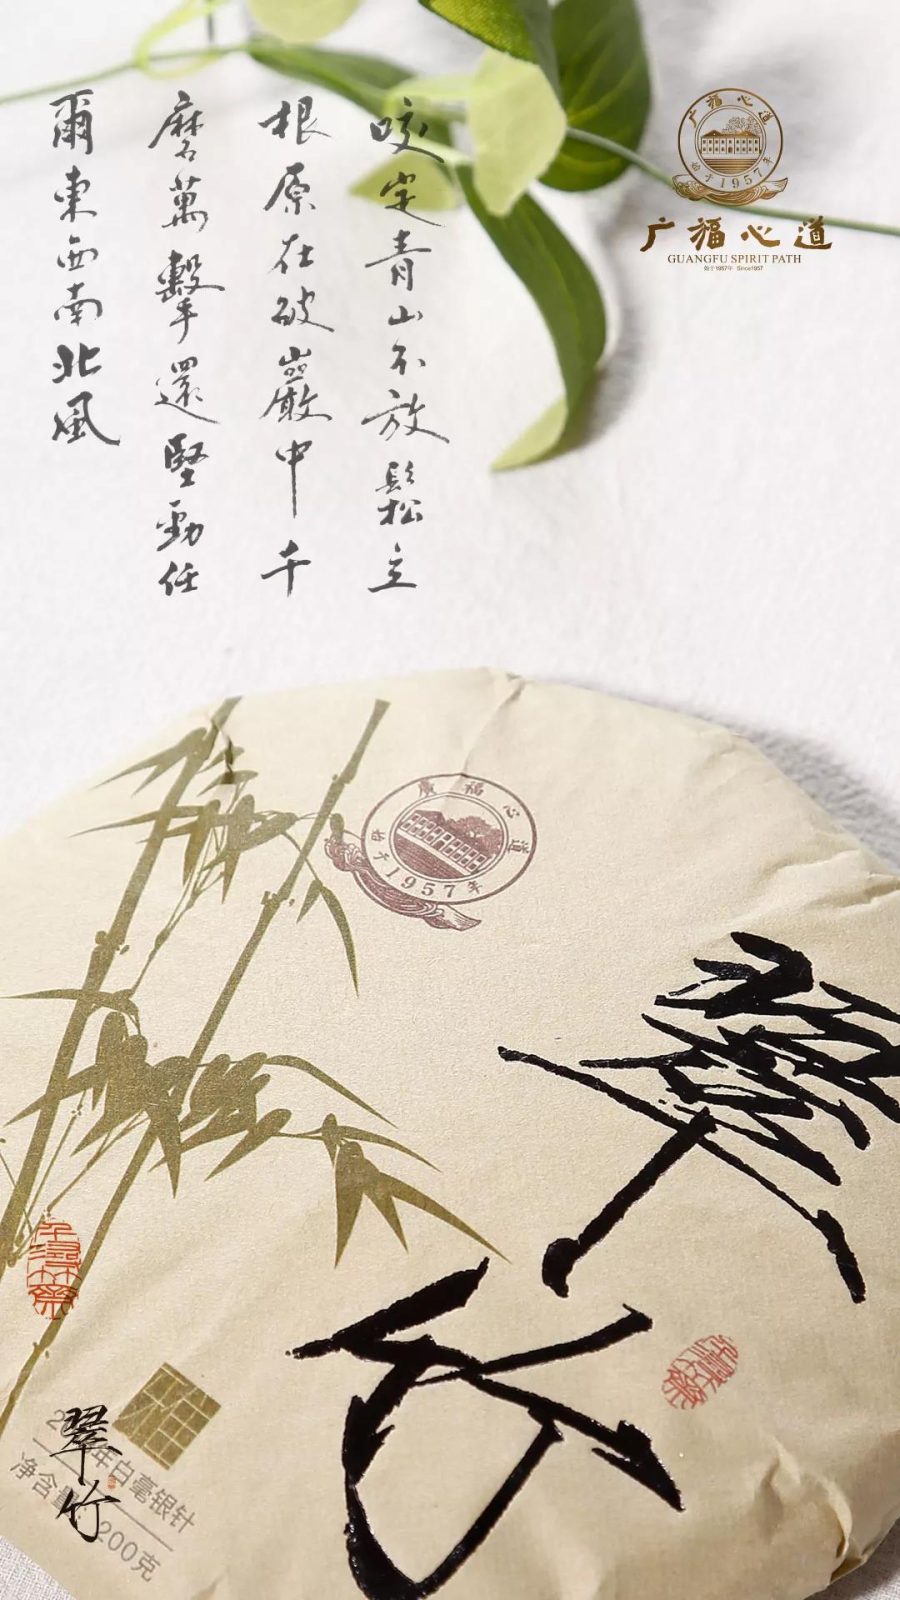 咬定青山不放鬆立
根原在破巖中千
磨萬擊還堅勁任
爾東西南北風
广福心道
始于1957年
广福心道
GUANGFU SPIRIT PATH
始于1957年 Since1957
廣福心道
始于1957年
翠竹
年白毫银针
净含量
200克
翠竹